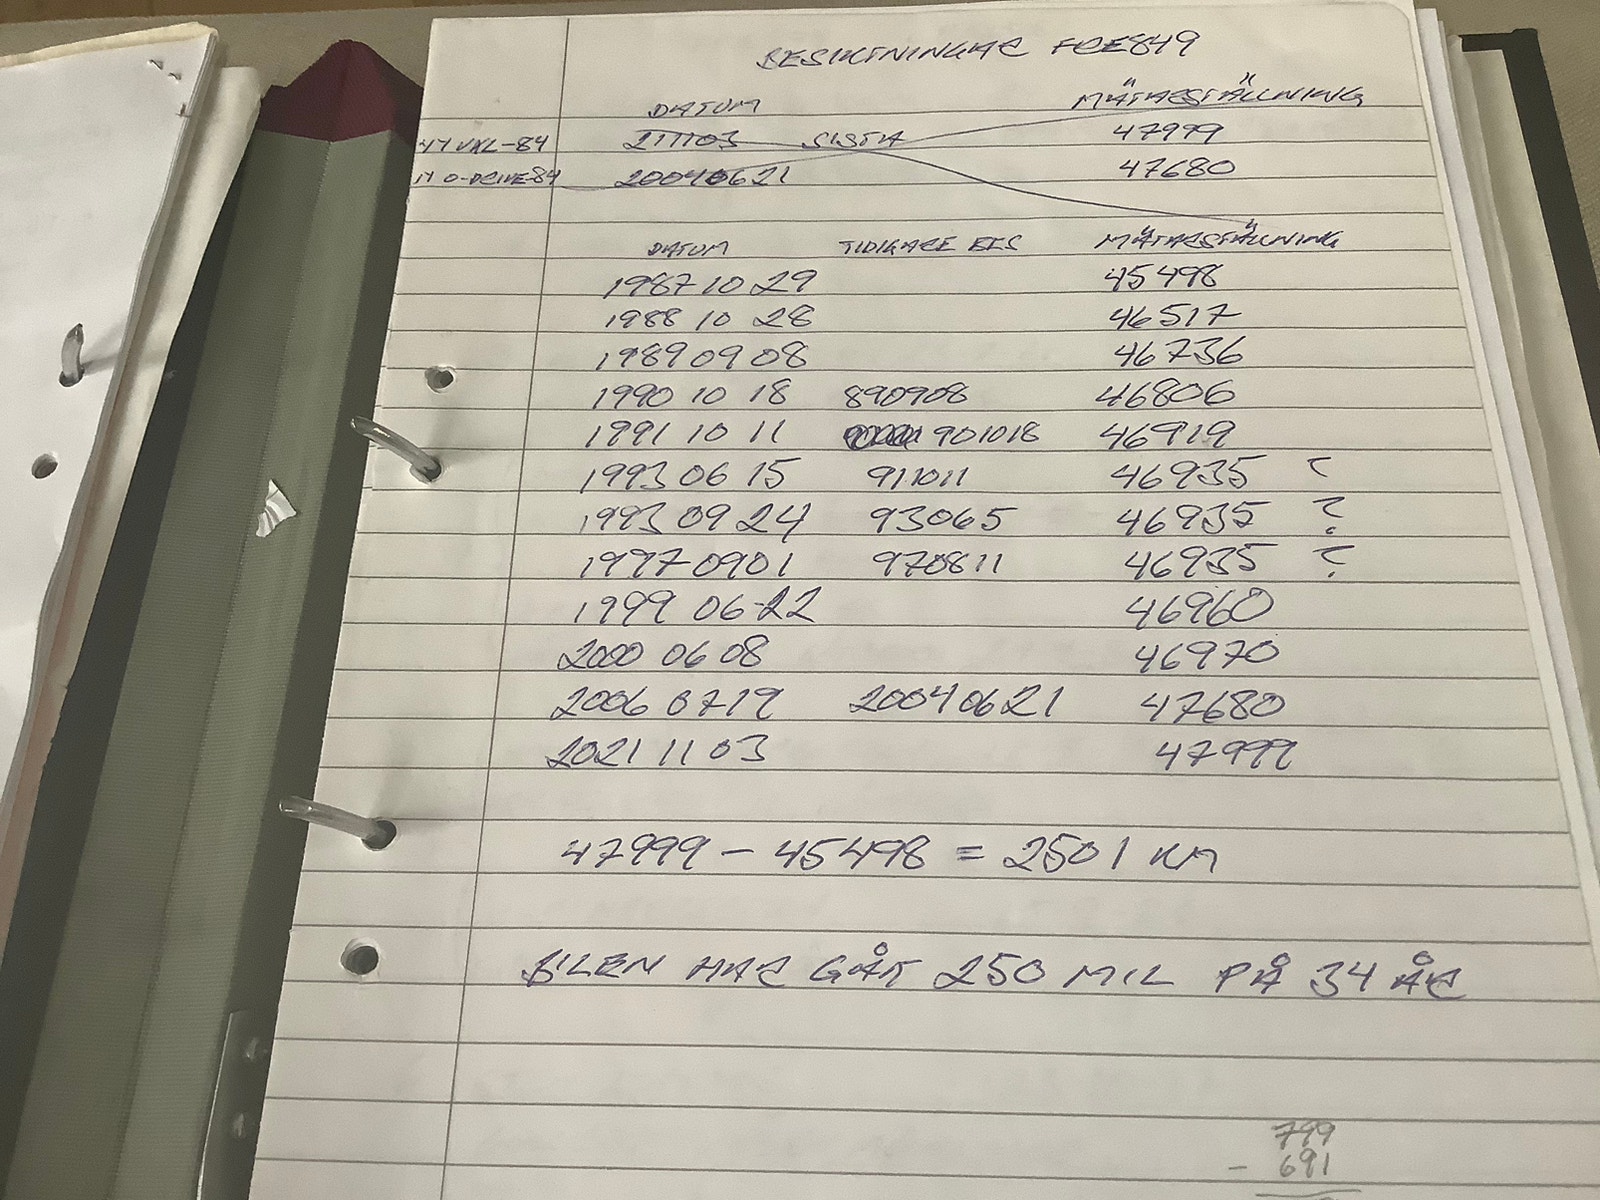 BESIKTNINGAR FDE849
DATUM MÄTARSTÄLLNING
NY VXL-84 211103 SISTA 47999
NY O-DRIVE 84 20040621 47680
DATUM TIDIGARE BES MÄTARSTÄLLNING
1987 10 29 45498
1988 10 28 46517
1989 09 08 46736
1990 10 18 890908 46806
1991 10 11 901018 46919
1993 06 15 911011 46935 ?
1993 09 24 93065 46935 ?
1997 0901 970811 46935 ?
1999 06-22 46960
2000 06 08 46970
2006 0719 20040621 47680
2021 11 03 47999
47999 - 45498 = 2501 KM
BILEN HAR GÅTT 250 MIL PÅ 34 ÅR
799
- 691